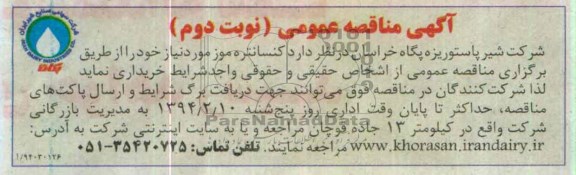 آگهی مناقصه عمومی (نوبت دوم)
شرکت شیر پاستوریزه پگاه خراسان در نظر دارد کنسانتره موز مورد نیاز خود را از طریق
برگزاری مناقصه عمومی از اشخاص حقیقی و حقوقی واجد شرایط خریداری نماید
لذا شرکت کنندگان در مناقصه فوق می‌توانند جهت دریافت برگ شرایط و ارسال پاکت‌های
مناقصه، حداکثر تا پایان وقت اداری روز پنج‌شنبه ۱۳۹۴/۲/۱۰ به مدیریت بازرگانی
شرکت واقع در کیلومتر ۱۳ جاده قوچان مراجعه و یا به سایت اینترنتی شرکت به آدرس:
www.khorasan.irandairy.ir مراجعه نمایند. تلفن تماس: ۳۵۴۲۰۷۲۵-۰۵۱
۱/۹۴۰۳۰۱۲۶
شرکت سهامی صنایع شیر ایران
پگاه
ParsNamadData